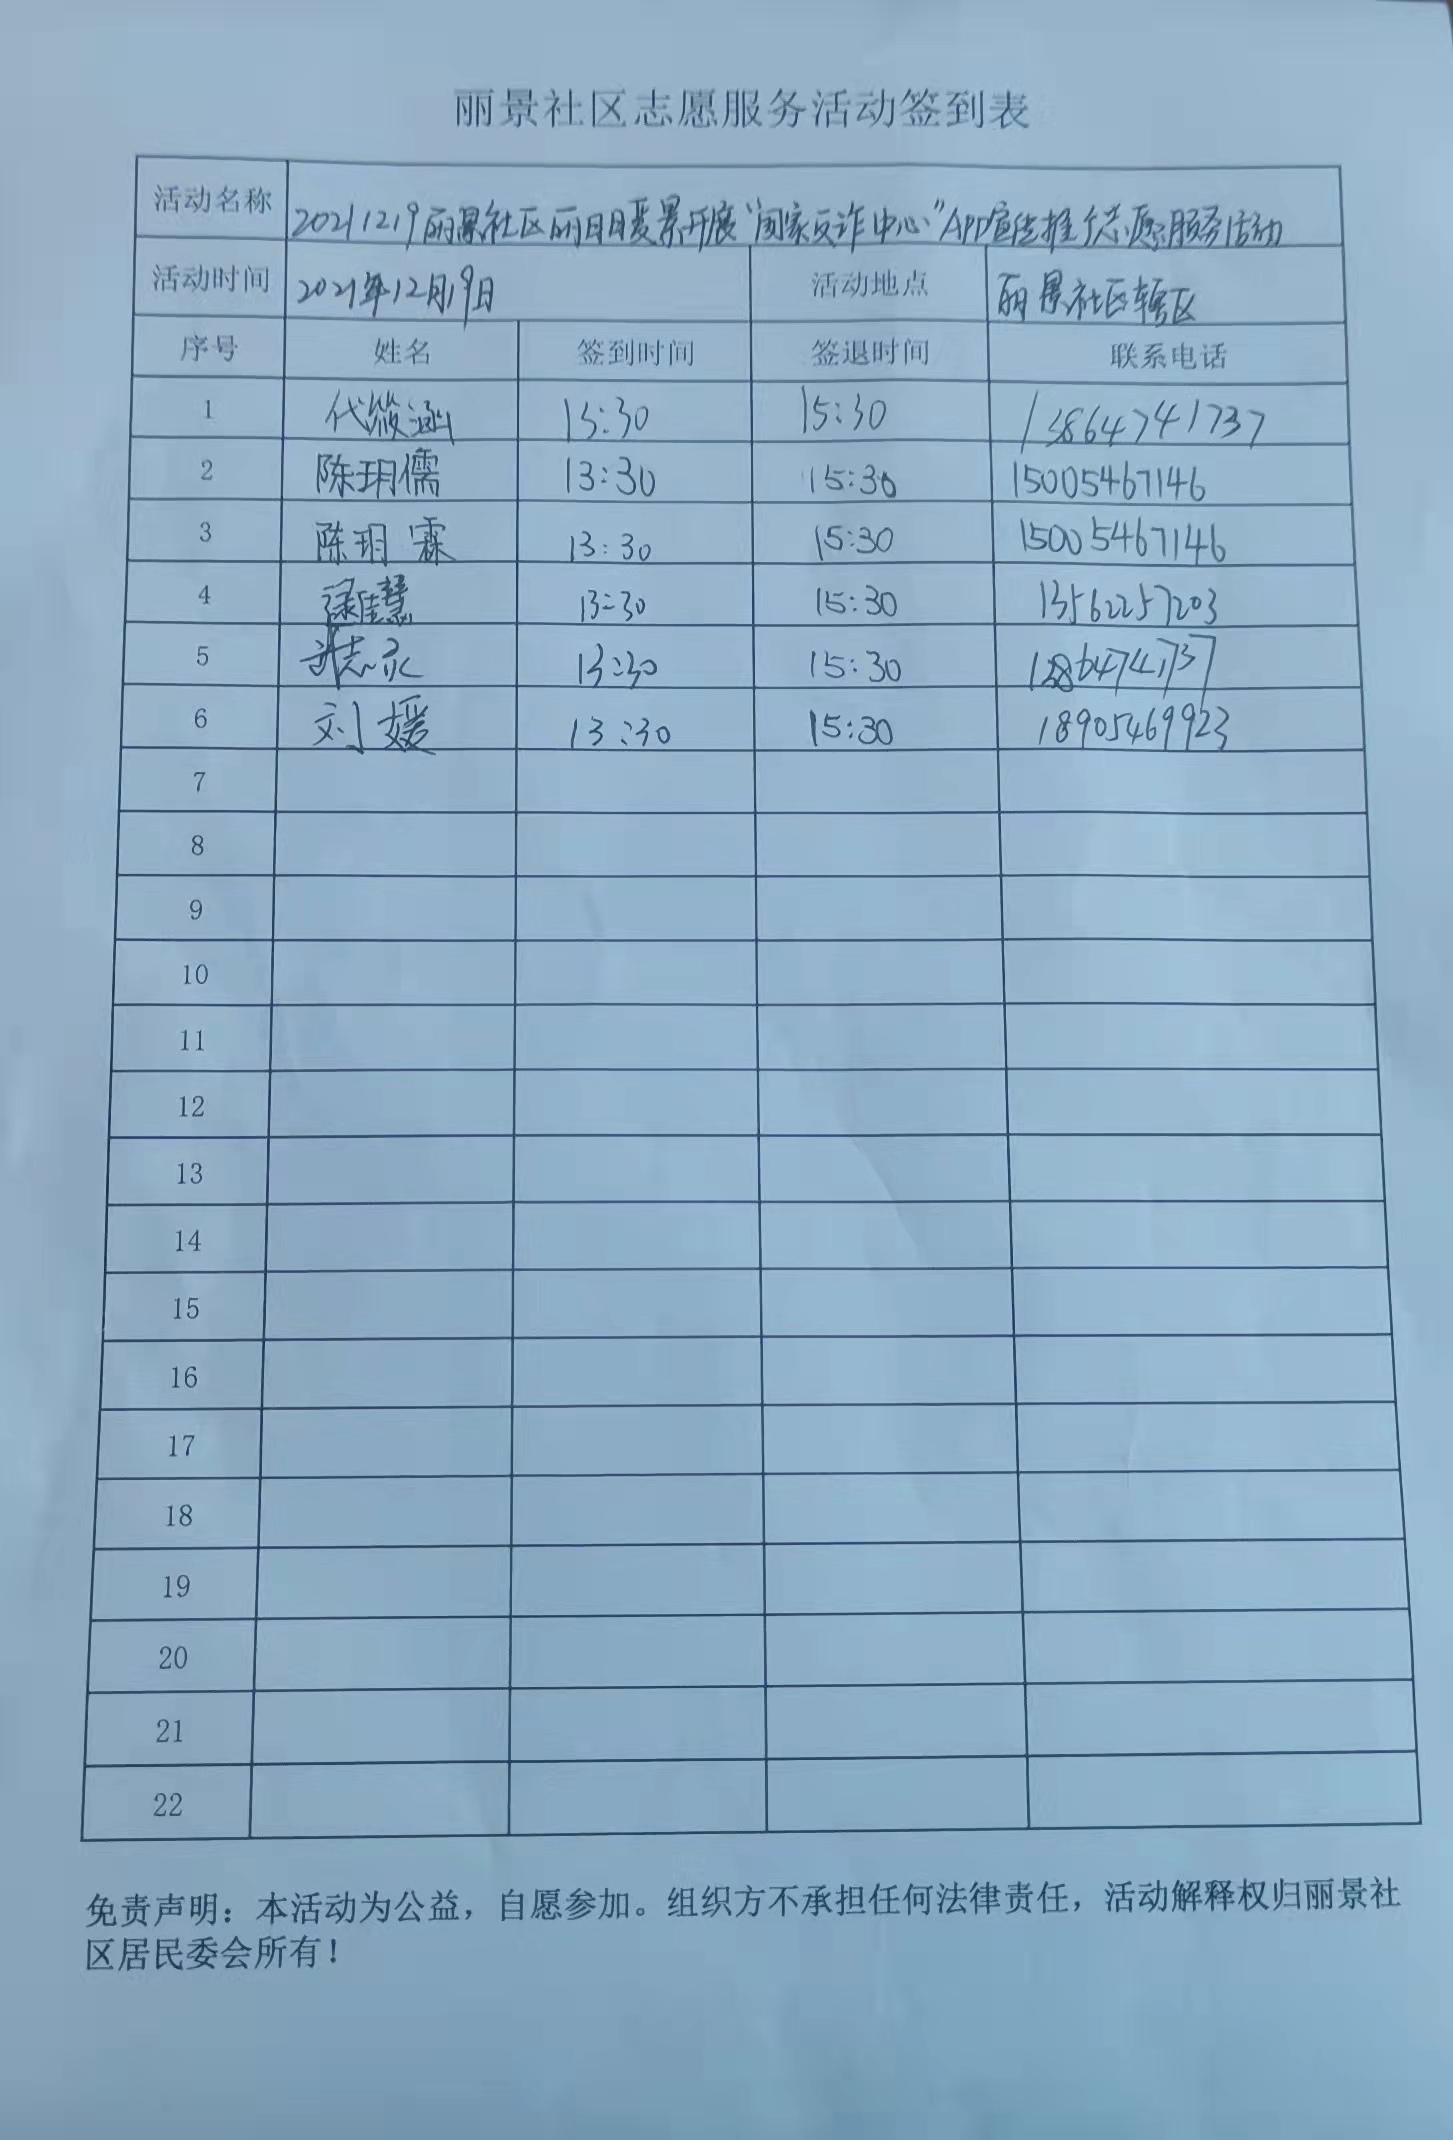 丽景社区志愿服务活动签到表
活动名称 20211219丽景社区丽日暖景开展“国家反诈中心”APP宣传推广志愿服务活动
活动时间 2021年12月19日 活动地点 丽景社区辖区
序号 姓名 签到时间 签退时间 联系电话
1 代筱涵 13:30 15:30 13864741737
2 陈玥儒 13:30 15:30 15005467146
3 陈玥霖 13:30 15:30 15005467146
4 佳慧 13:30 15:30 13562257203
5 13:30 15:30
6 刘媛 13:30 15:30 18905469923
7
8
9
10
11
12
13
14
15
16
17
18
19
20
21
22
免责声明：本活动为公益，自愿参加。组织方不承担任何法律责任，活动解释权归丽景社
区居民委会所有！